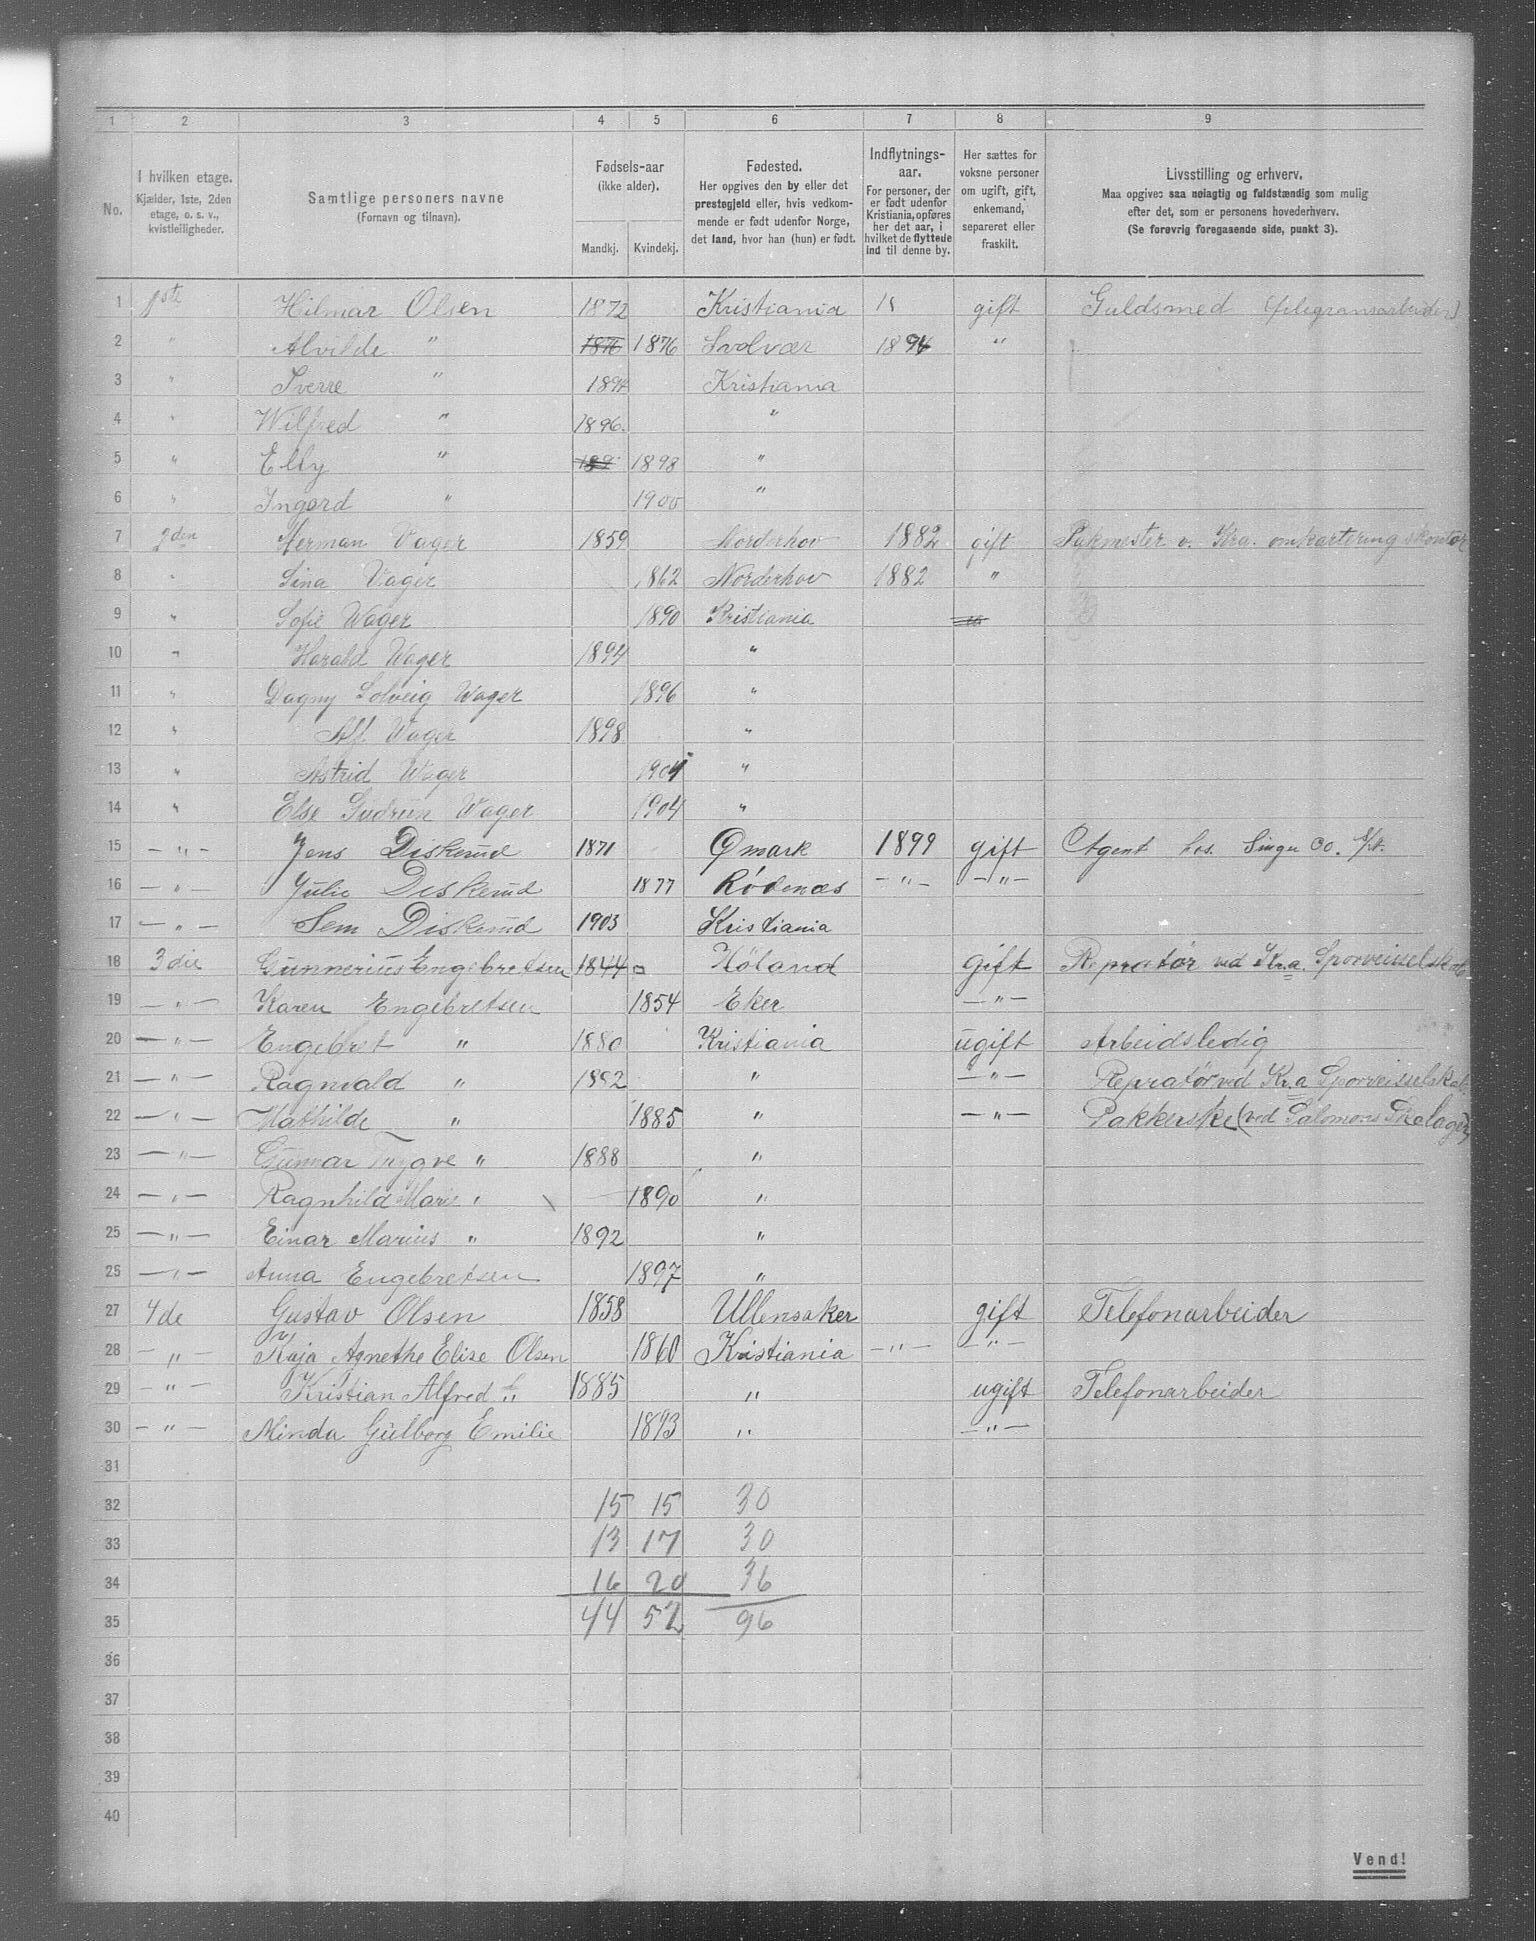 1 2 3 4 5 6 7 8 9
No. I hvilken etage. Kjælder, 1ste, 2den etage, o. s. v., kvistleiligheder. Samtlige personers navne (Fornavn og tilnavn). Fødsels-aar (ikke alder). Mandkj. Kvindekj. Fødested. Her opgives den by eller det prestegjeld eller, hvis vedkommende er født udenfor Norge, det land, hvor han (hun) er født. Indflytnings-aar. For personer, der er født udenfor Kristiania, opføres her det aar, i hvilket de flyttede ind til denne by. Her sættes for voksne personer om ugift, gift, enkemand, separeret eller fraskilt. Livsstilling og erhverv. Maa opgives saa nøiagtig og fuldstændig som mulig efter det, som er personens hovederhverv. (Se forøvrig foregaaende side, punkt 3).
1 1ste Hilmar Olsen 1872 Kristiania 18 gift Guldsmed (filegransarbeider)
2 " Alvilde " 1876 1876 Svolvær 1894 "
3 " Sverre " 1894 Kristiania
4 " Wilfred " 1896. "
5 " Elly " 1898 "
6 " Ingerd " 1900 "
7 2den Herman Vager 1859 Norderhov 1882 gift Pakmester v. Kra. omkarteringskontor
8 " Lina Vager 1862 Norderhov 1882 "
9 " Sofie Wager 1890 Kristiania
10 " Harald Wager 1894 "
11 " Dagny Solveig Wager 1896 "
12 " Alf Wager 1898 "
13 " Astrid Wager 1901 "
14 " Else Gudrun Vager 1904 "
15 — " — Jens Diskerud 1871 Ømark 1899 gift Agent hos. Singer Co. S/A.
16 — " — Julie Diskerud 1877 Rødenæs — " — — " —
17 — " — Sem Diskerud 1903 Kristiania
18 3die Gunnerius Engebretsen 1844 Høland gift Repratør ved Kr.a. Sporveisselskab
19 — " — Karen Engebretsen 1854 Eker — " —
20 — " — Engebret " 1880 Kristiania ugift Arbeidsledig
21 — " — Ragnvald " 1882 " — " — Repratør ved Kr.a Sporveisselskab
22 — " — Mathilde " 1885 " — " — Pakkerske (ved Salomons Skolager)
23 — " — Gunnar Trygve " 1888 "
24 — " — Ragnhild Marie " 1890 "
25 — " — Einar Marius " 1892 "
25 — " — Anna Engebretsen 1897 "
27 4de Gustav Olsen 1858 Ullensaker gift Telefonarbeider
28 — " — Kaja Agnethe Elise Olsen 1860 Kristiania — " — — " —
29 — " — Kristian Alfred " 1885 " ugift Telefonarbeider
30 — " — Minda Gulborg Emilie 1893 " — " —
31
32 15 15 30
33 13 17 30
34 16 20 36
35 44 52 96
36
37
38
39
40
Vend!